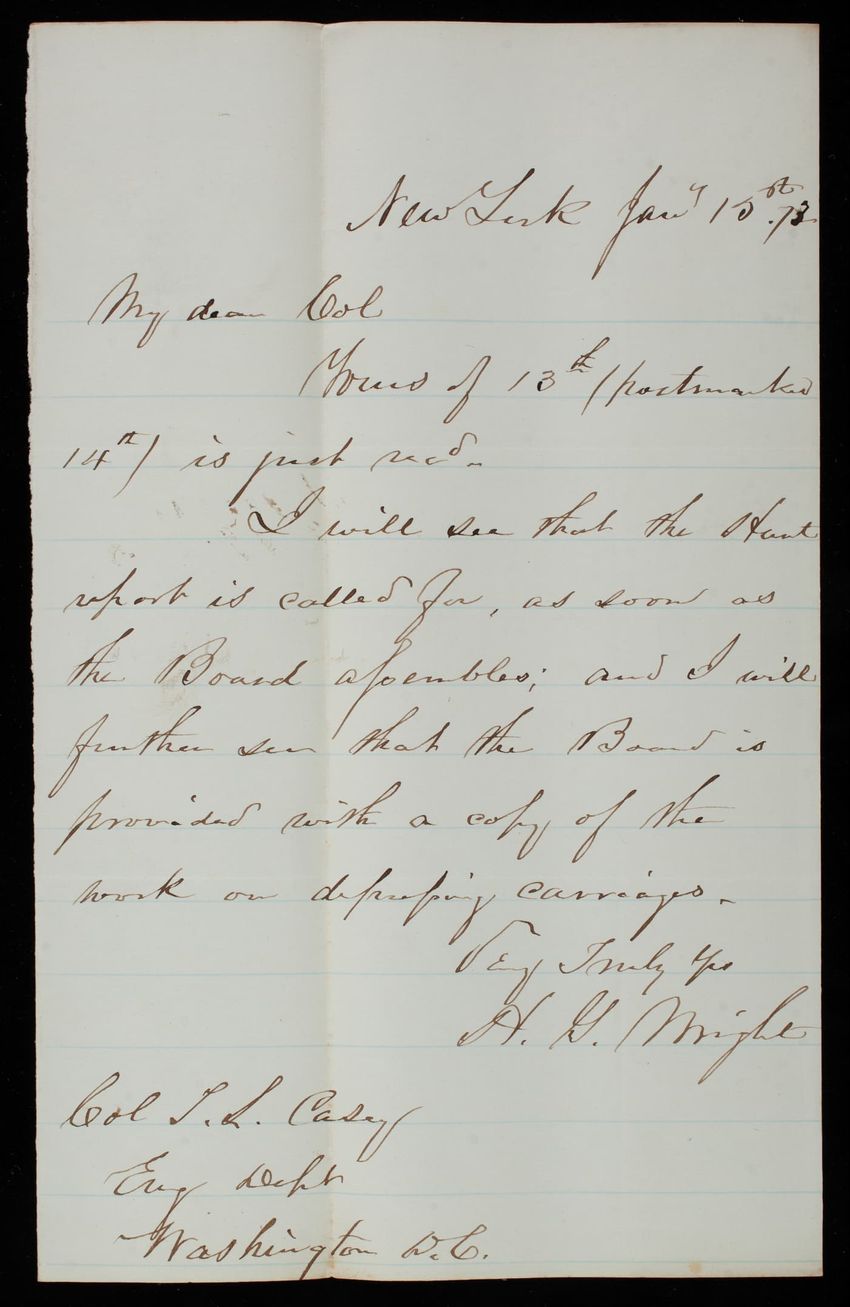 New York Jany 15th. 73
My dear Col
Yours of 13th (postmarked
14th) is just recd.
I will see that the Hunt
report is called for, as soon as
the Board assembles; and I will
further see that the Board is
provided with a copy of the
work on depressing carriages.
Very Truly Yrs
H. G. Wright
Col T. L. Casey
Eng Dept
Washington D.C.